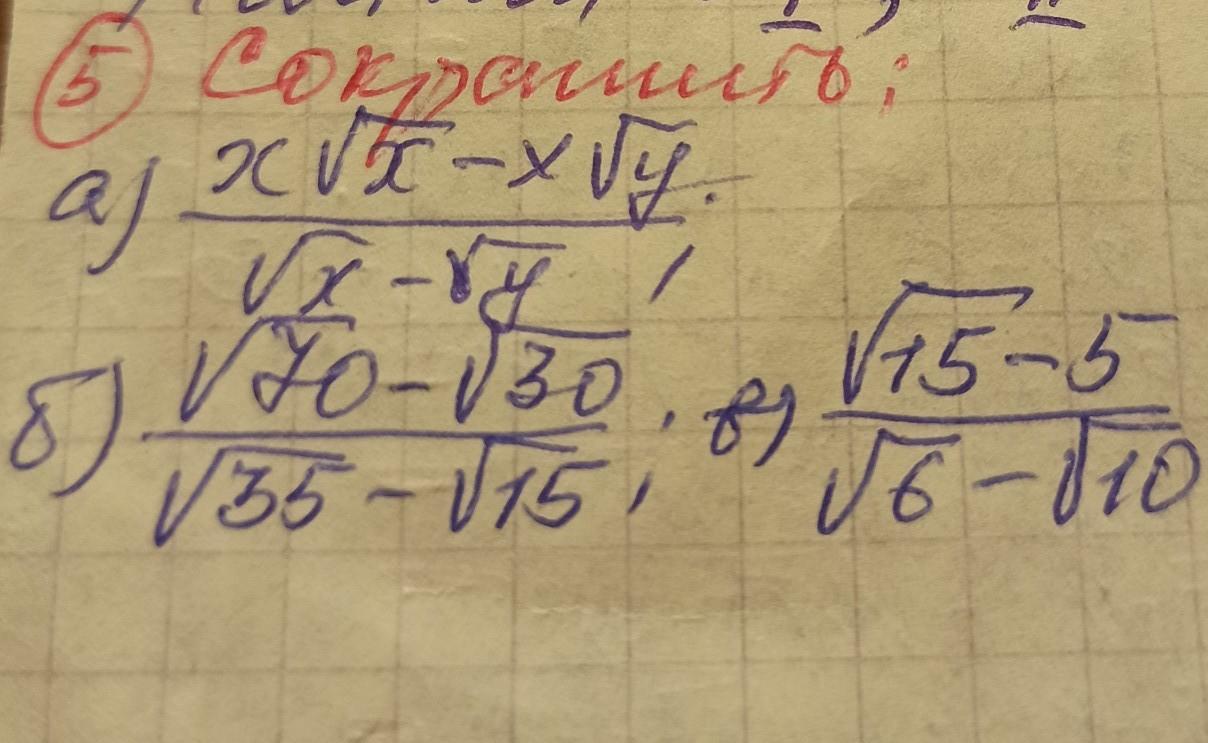 ⑤ Сократить:
а) (x√x - x√y) / (√x - √y);
б) (√70 - √30) / (√35 - √15); в) (√15 - 5) / (√6 - √10)